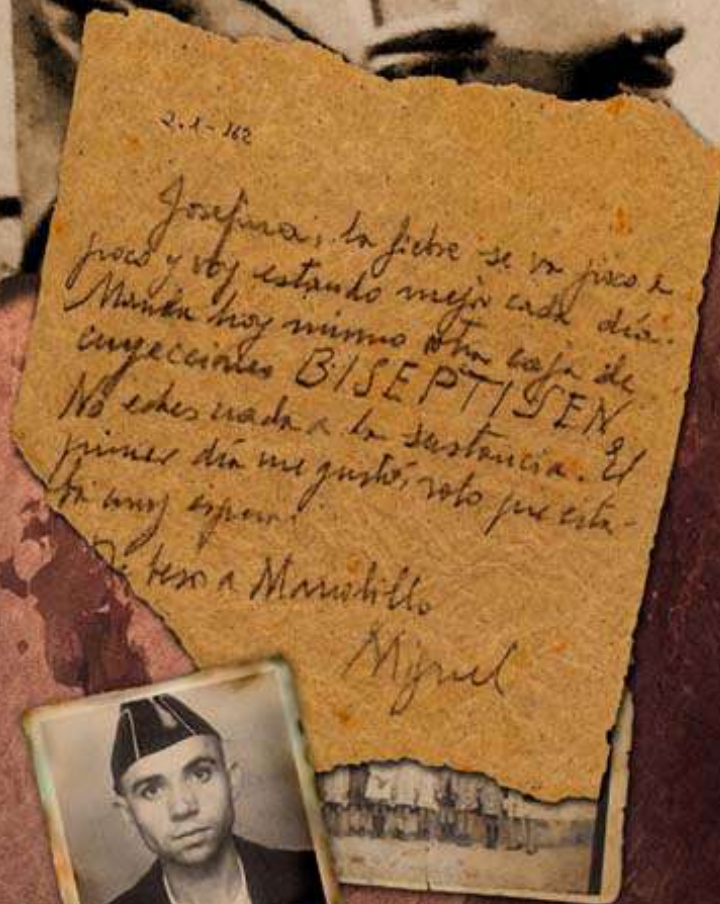 2-1-162
Josefina; la fiebre se va poco a
poco y voy estando mejor cada día.
Manda hoy mismo otra caja de
inyecciones BISEPTISEN
No eches nada a la sustancia. El
primer día me gustó, solo que esta-
ba muy espesa.
beso a Manolillo
Miguel